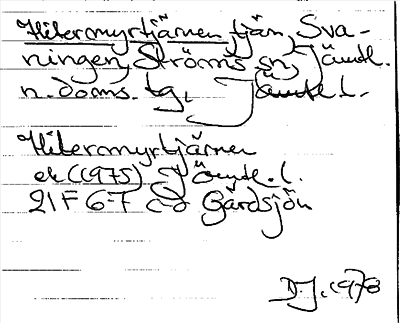 Hitermyrtjärnen, tjärn, Sva-
ningen, Ströms sn, Jämtl.
n. doms. tg, Jämtl. l.
Hitermyrtjärnen
ek (1975) Jämtl. l.
21F 6-7 c-d Gårdsjön
D.J. 1978